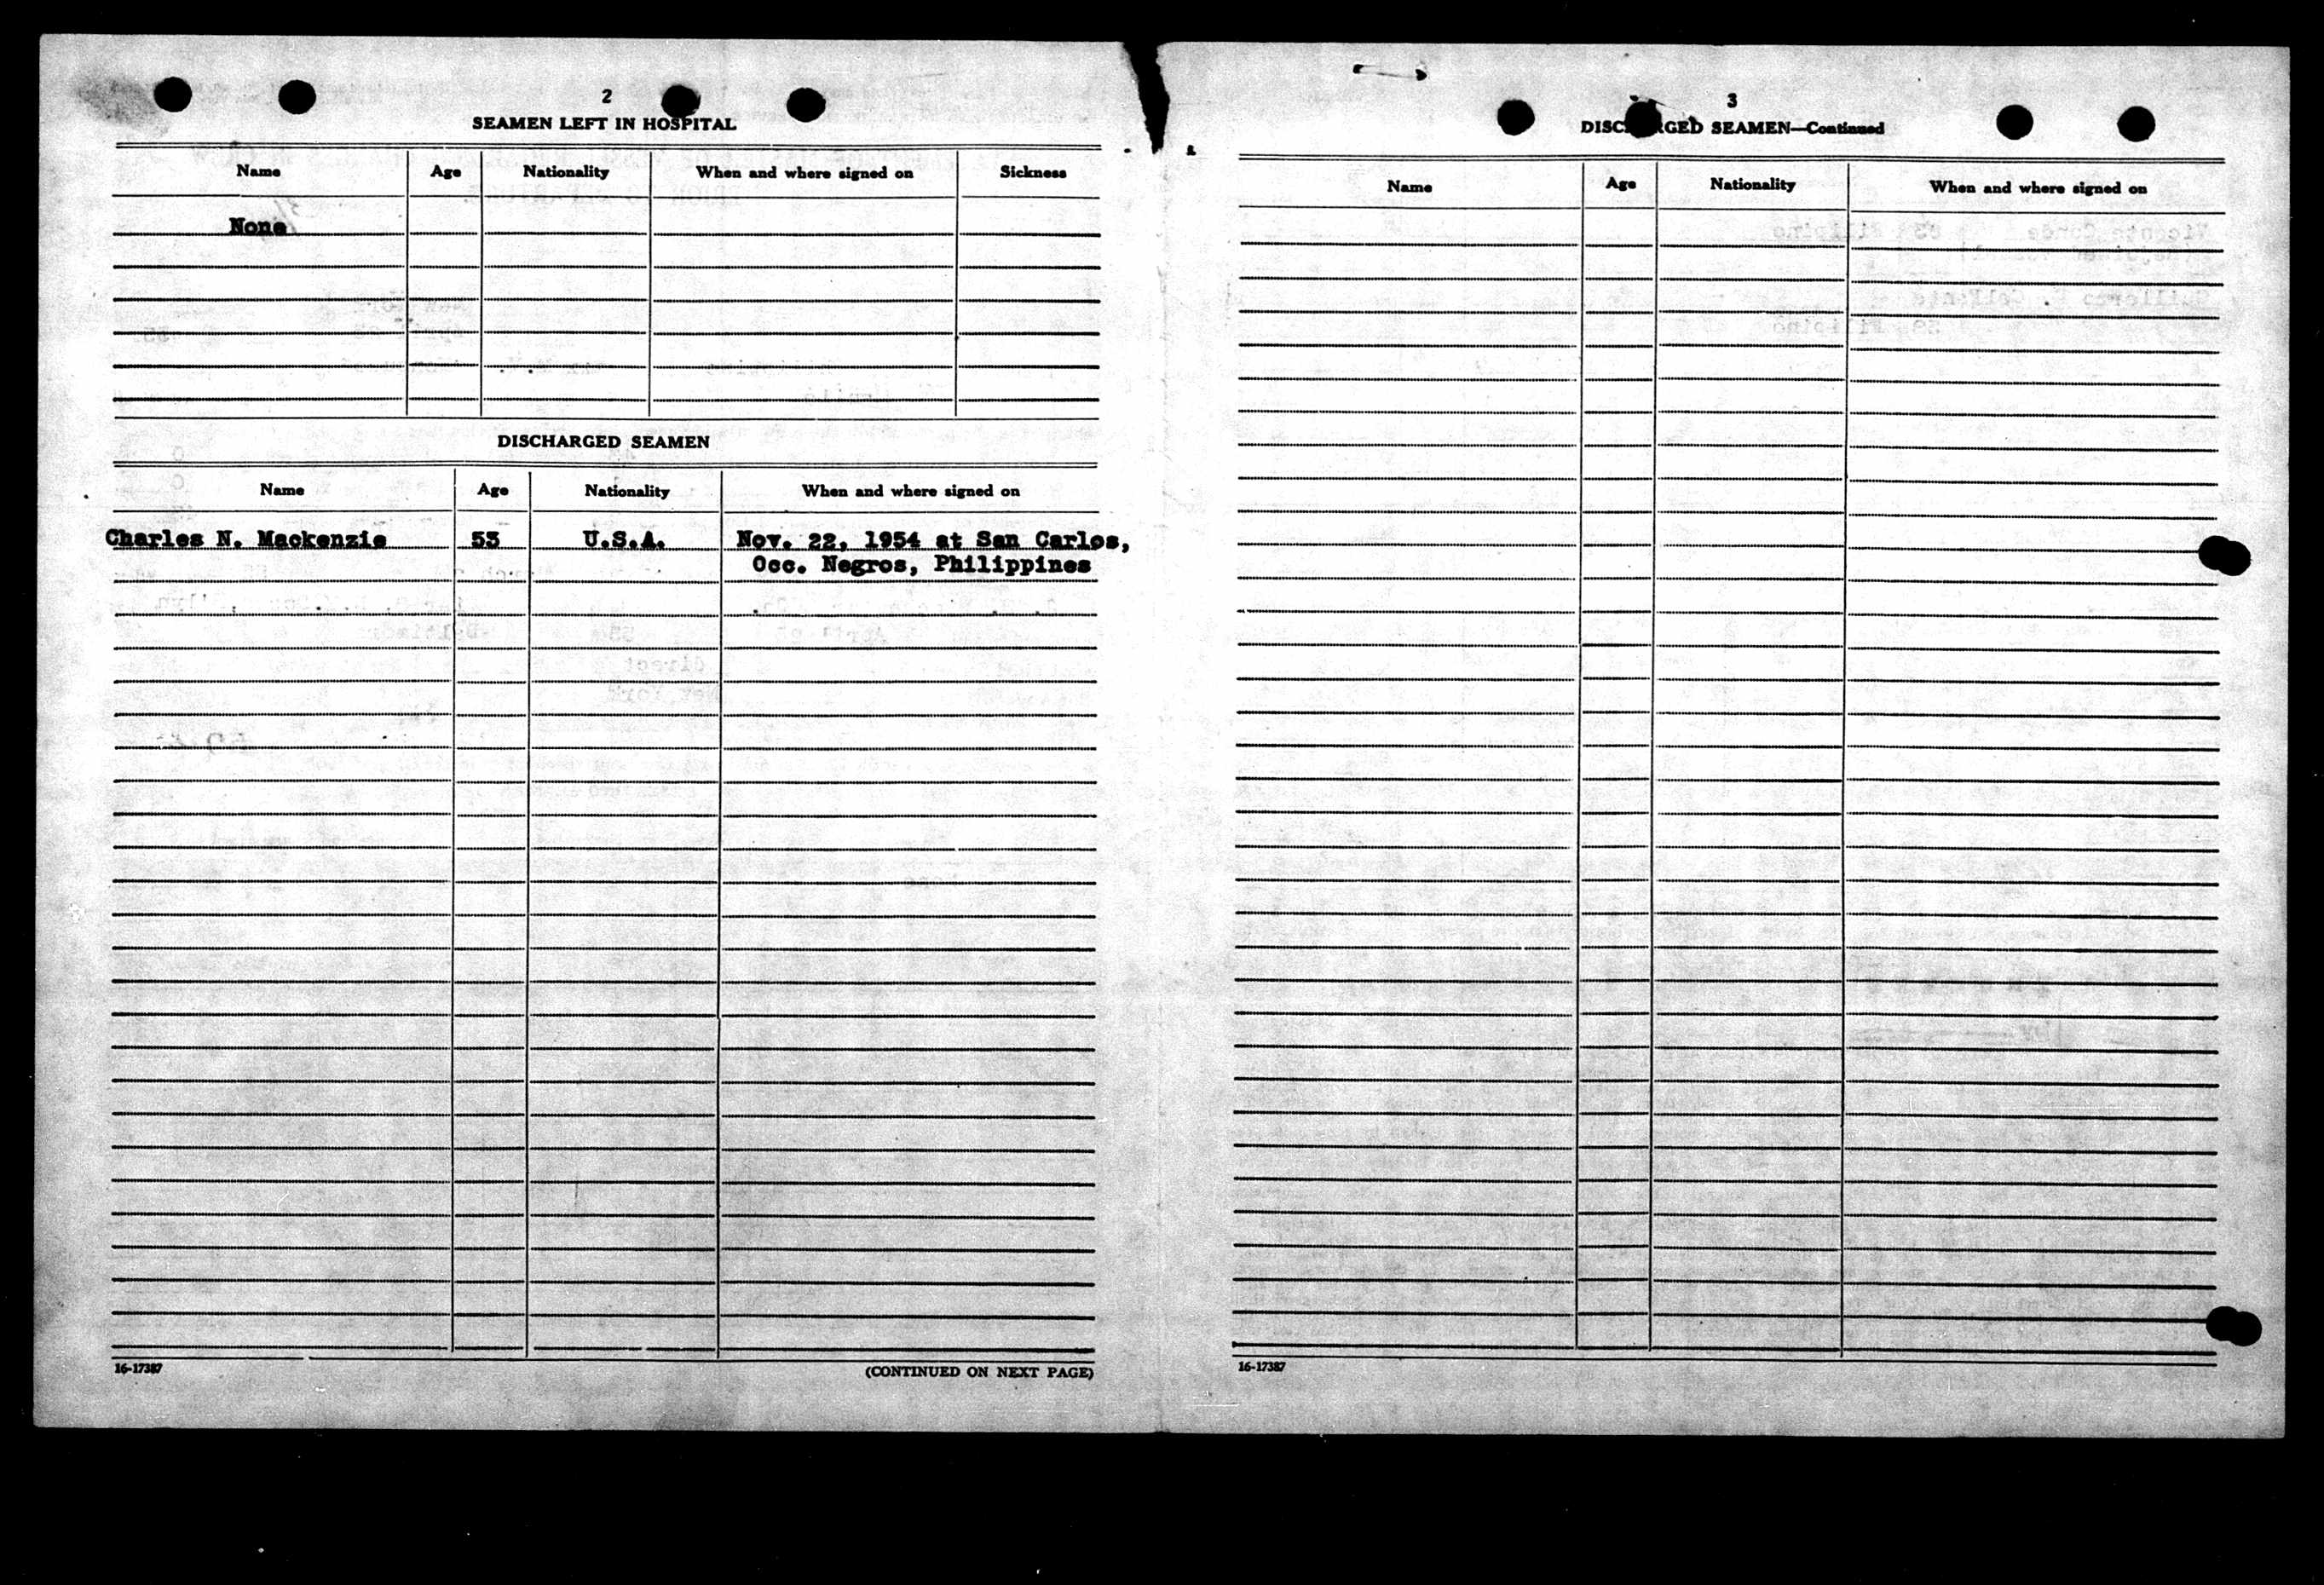 2
SEAMEN LEFT IN HOSPITAL
Name Age Nationality When and where signed on Sickness
None
DISCHARGED SEAMEN
Name Age Nationality When and where signed on
Charles N. Mackenzie 53 U.S.A. Nov. 22, 1954 at San Carlos,
Occ. Negros, Philippines
16-17387 (CONTINUED ON NEXT PAGE)
3
DISCHARGED SEAMEN—Continued
Name Age Nationality When and where signed on
16-17387